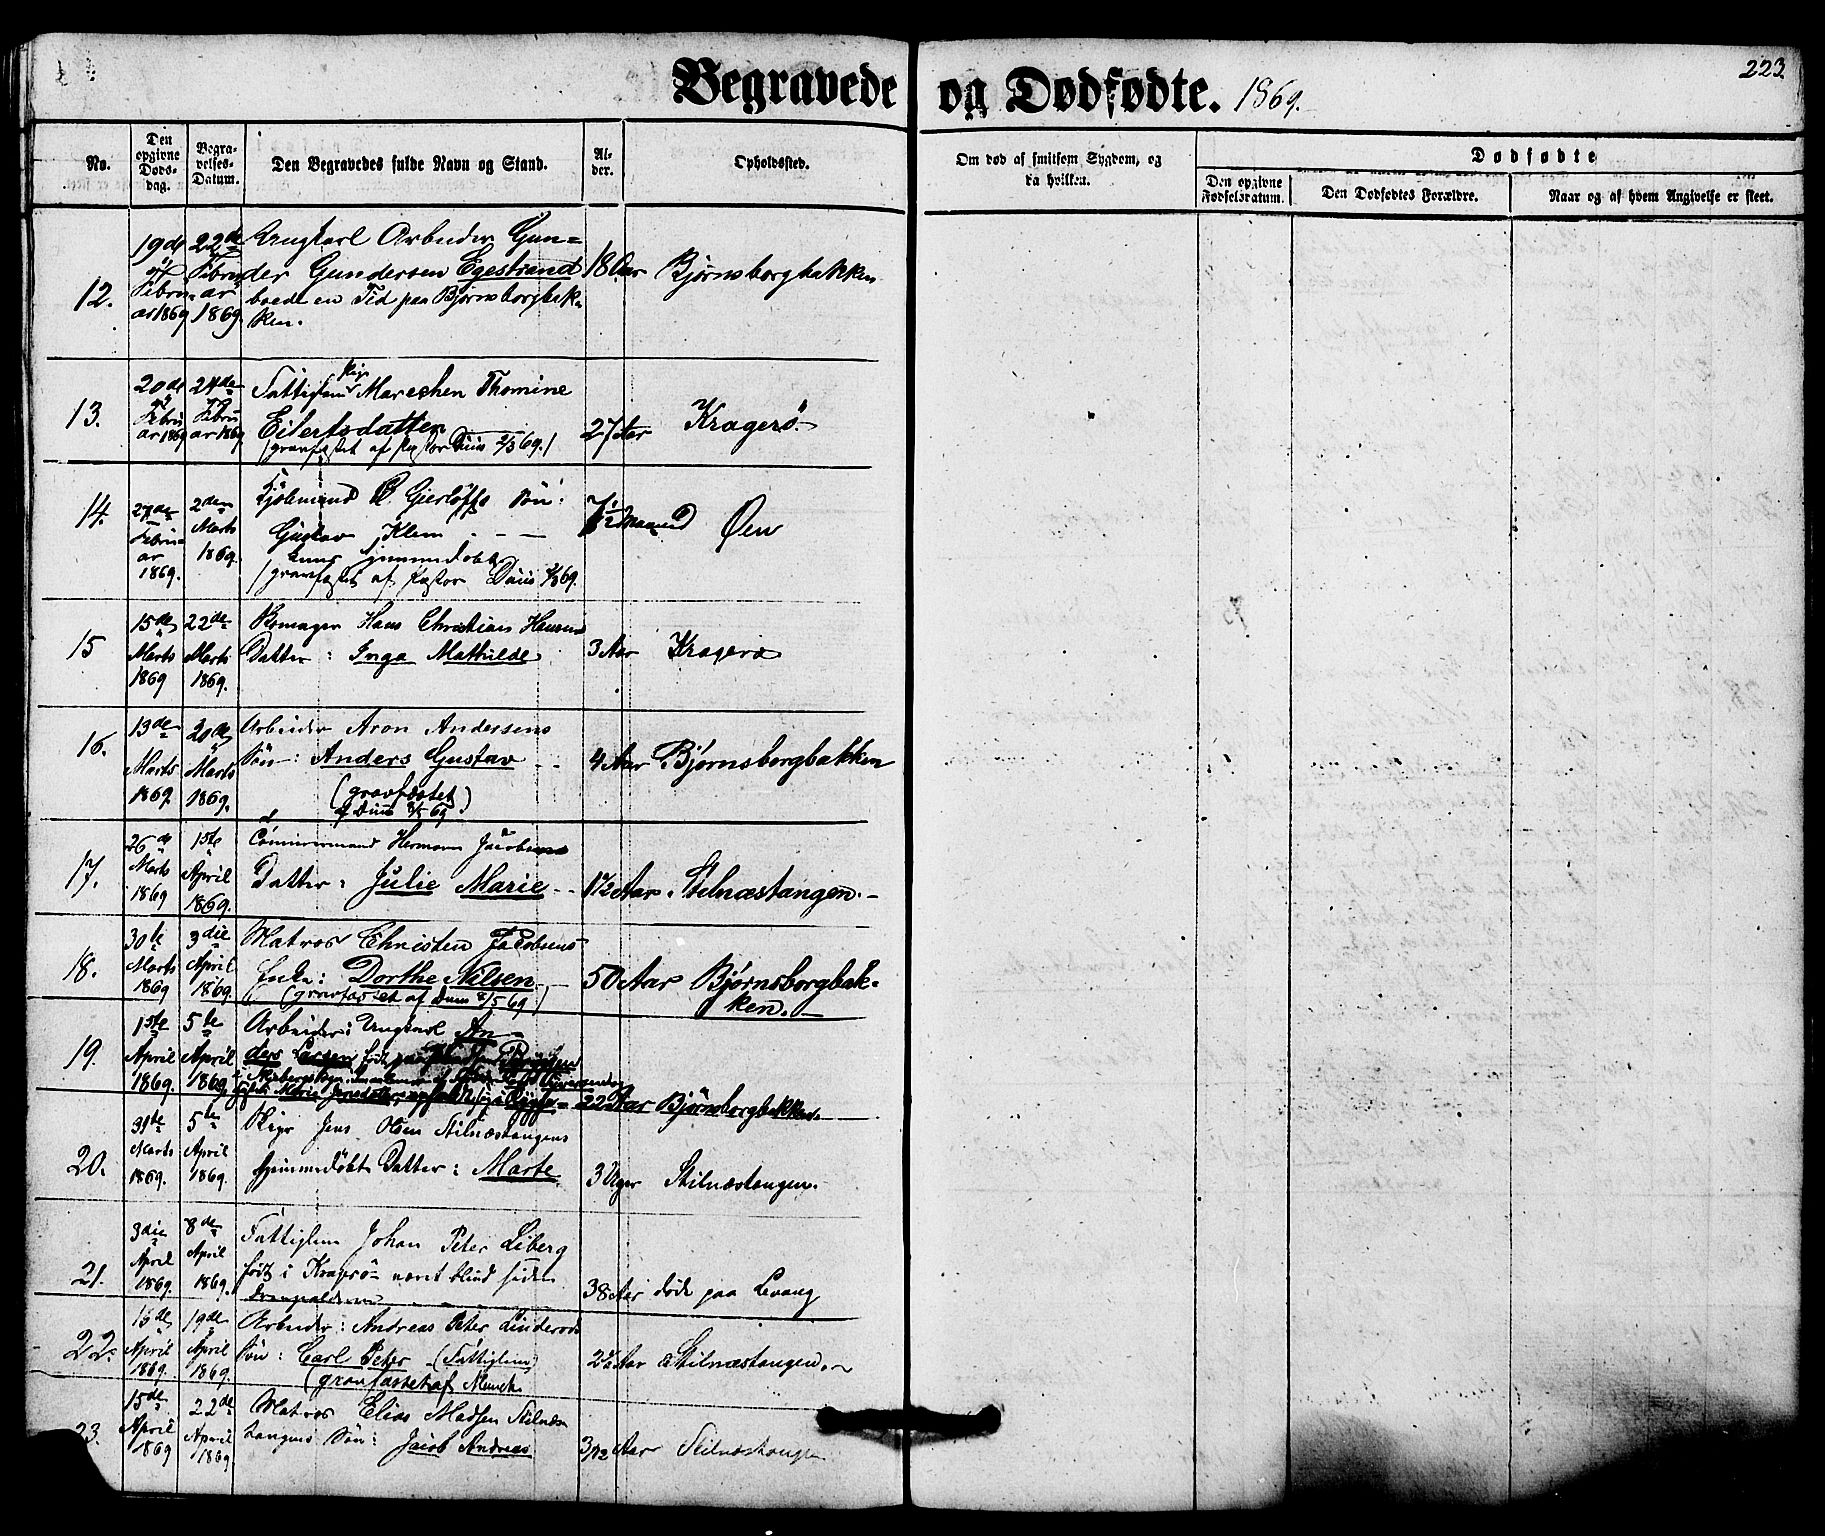 223
Begravede og Dødfødte. 1869.
No.
Den opgivne Døds-dag.
Begra-velses-Datum.
Den Begravedes fulde Navn og Stand.
Al-der.
Opholdssted.
Om død af smitsom Sygdom, og da hvilken.
Dødfødte
Den opgivne Fødselsdatum.
Den Dødfødtes Forældre.
Naar og af hvem Angivelse er skeet.
12.
19de Februar 1869
22de Februar 1869.
Ungkarl Arbeider Gun=
der Gundersen Egestrand
boede en Tid paa Bjørnsborgbak-
ken.
18 Aar
Bjørnsborgbakken
13.
20de Februar 1869
24de Februar 1869
Fattiglem Pige Marechen Thomine
Eilertsdatter
(gravfæstet af Pastor Duus 2/3 69.)
27 Aar
Kragerö.
14.
27de Februar 1869.
2den Marts 1869.
C. Gierløffs Sön:
Gustav Klem
hjemmedøbt
(gravfæstet af Pastor Duus 69.
7½ Maaned
Øen
15
15de Marts 1869
22de Marts 1869.
Hans Christian Hansens
Datter: Inga Mathilde
3 Aar
Kragerø
16.
13de Marts 1869.
20de Marts 1869.
Arbeider Aron Andersens
Sön: Anders Gustav
(gravfæstet
af Duus 8/5 69.)
4 Aar
Bjørnsborgbakken
17.
26de Marts 1869
1ste April 1869.
Tømmermand Herman Jacobsens
Datter: Julie Marie
1½ Aar
Stilnæstangen.
18.
30te Marts 1869
3die April 1869
Matros Christen Jacobsens
Enke: Dorthe Nilsen
(gravfæstet af Duus 8/5 69.)
50 Aar
Bjørnsborgbak-
ken.
19.
1ste April 1869.
5te April 1869
Arbeider: Ungkarl An-
ders Larsen født paa
22 Aar
Bjørnsborgbakken
20.
31te Marts 1869.
5te April 1869.
Jens Olsen Stilnæstangens
hjemmedøbt Datter: Marte
3 Uger
Stilnæstangen.
21.
3die April 1869.
8de April 1869.
Fattiglem Johan Peter Liberg
född i Kragerö været blind siden
38 Aar
döde paa Levang
22.
16de April 1869.
19de April 1869.
Arbeider: Andreas Peter
Sön: Carl Peter (Fattiglem)
(gravfæstet af Munch
2½ Aar
Stilnæstangen.
23.
15de April 1869
22de April 1869.
Matros Elias Madsen Stilnæs
tangens Sön: Jacob Andreas
3½ Aar
Stilnæstangen